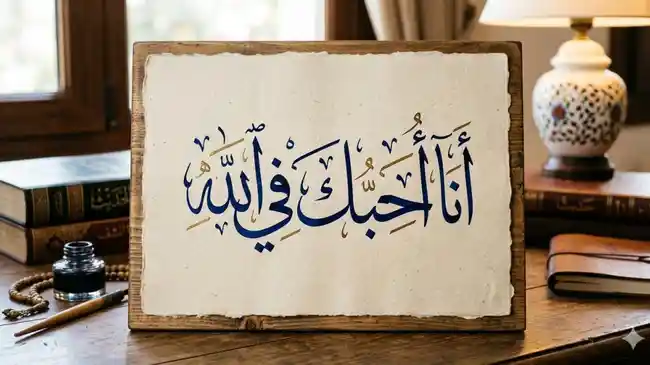 أَنَا أُحِبُّكَ فِي اللَّهِ